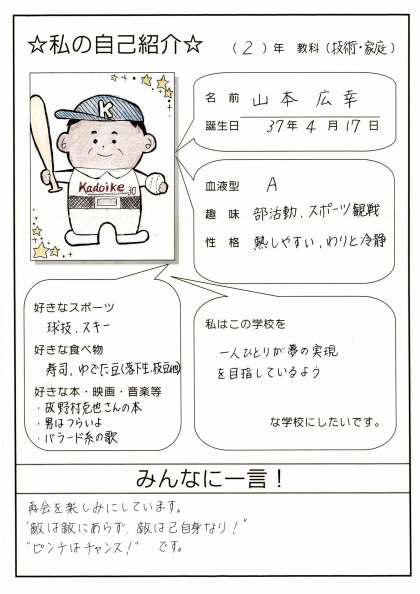 ☆私の自己紹介☆ （2）年 教科（技術・家庭）
K
Kadoike
30
名前 山本 広幸
誕生日 37年 4月 17日
血液型 A
趣味 部活動、スポーツ観戦
性格 熱しやすい、わりと冷静
好きなスポーツ
球技、スキー
好きな食べ物
寿司、ゆでた豆(落下生、枝豆他)
好きな本・映画・音楽等
・野村克也さんの本
・男はつらいよ
・バラード系の歌
私はこの学校を
一人ひとりが夢の実現
を目指しているよう
な学校にしたいです。
みんなに一言！
再会を楽しみにしています。
"敵は敵にあらず、敵は己自身なり！"
"ピンチはチャンス！" です。